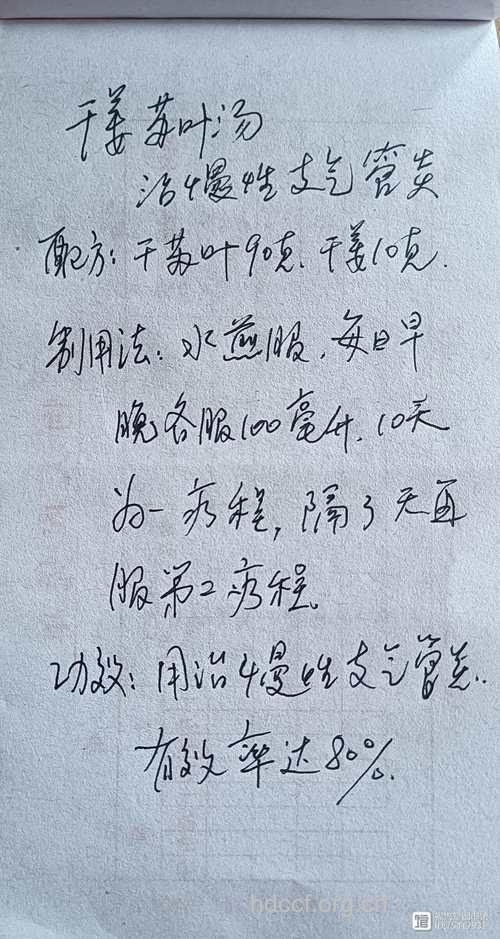 干姜苏叶汤
治慢性支气管炎
配方：干苏叶90克、干姜10克.
制用法：水煎服，每日早
晚各服100毫升. 10天
为一疗程，隔3天再
服第2疗程.
功效：用治慢性支气管炎.
有效率达80%.
hdccf.org.cn